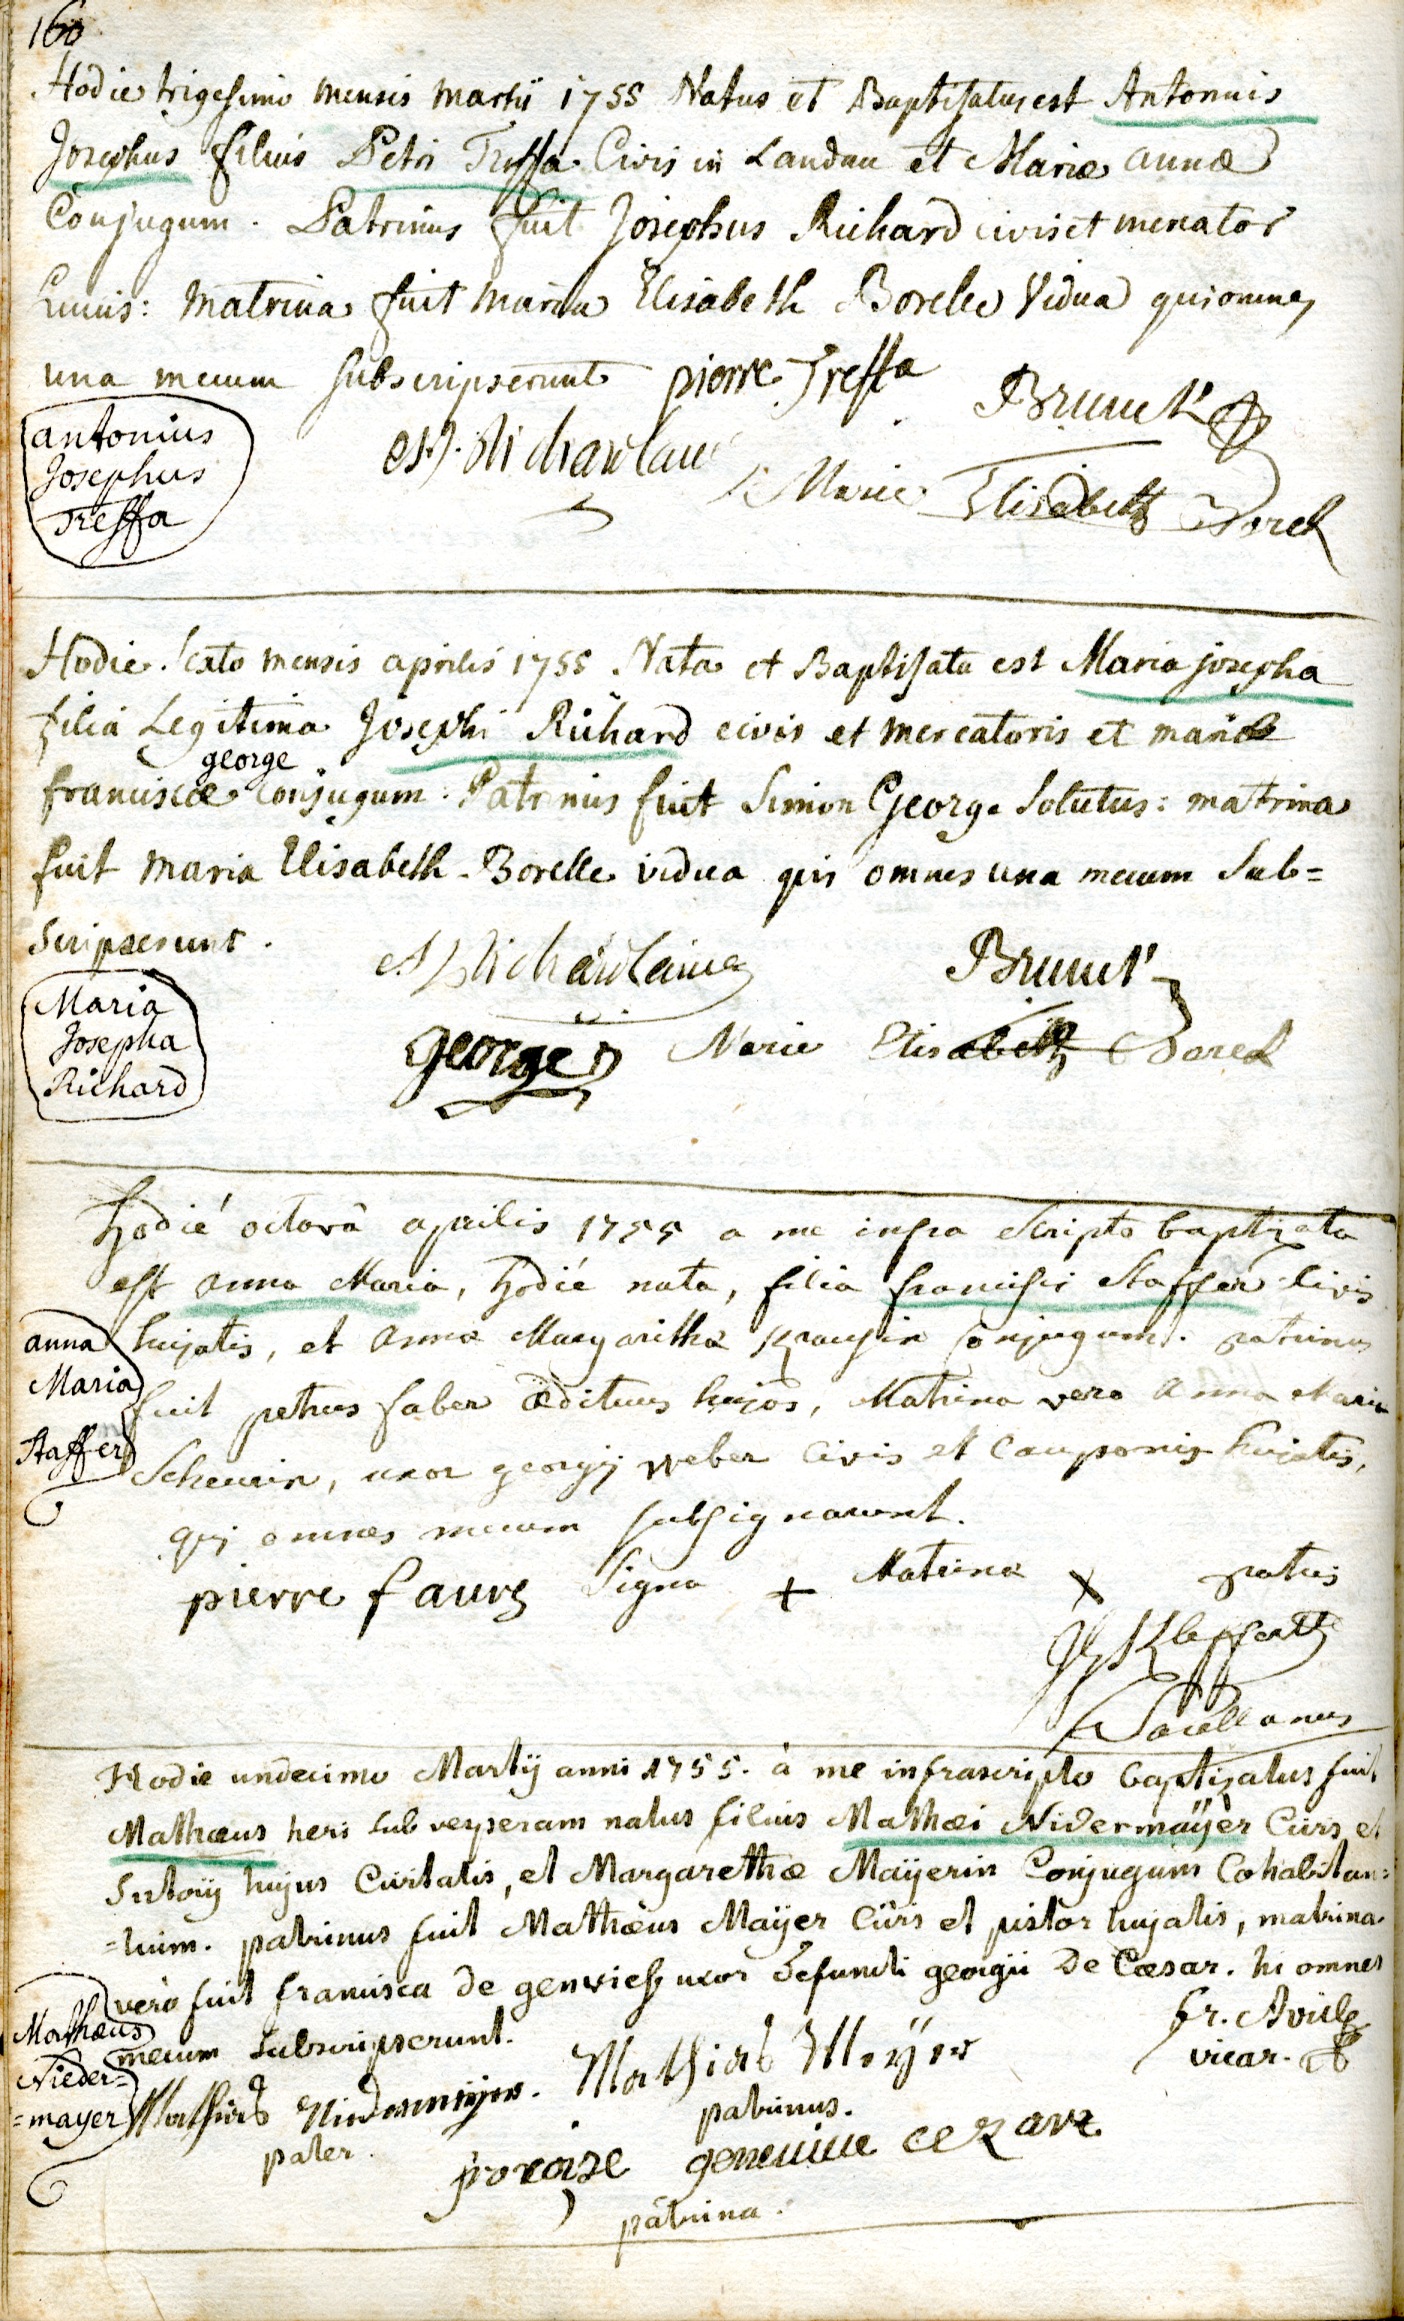 160
Hodie trigesimo mensis martii 1755 Natus et Baptisatus est Antonius
Josephus filius Petri Treffa Civis in Landau et Mariæ annæ
Conjugum. Patrinus fuit Josephus Richard civis et mercator
Matrina fuit maria Elisabeth Borelle Vidua qui omnes
una mecum subscripserunt pierre Treffa
Brunck
Marie Elisabeth Borell
antonius
Josephus
Treffa
Hodie Sexto mensis aprilis 1755 Nata et Baptisata est Maria josepha
filia Legitima Josephi Richard civis et mercatoris et mariæ
george
franciscæ conjugum. Patrinus fuit Simon George Solutus: matrina
fuit maria Elisabeth Borelle vidua qui omnes una mecum Sub=
scripserunt.
Brunck
george Marie Elisabeth Borell
Maria
Josepha
Richard
Hodié octavâ aprilis 1755 a me infra scripto baptizata
est anna Maria, hodié nata, filia francisci Staffer Civis
hujatis, et annæ Margarithæ Krausin Conjugum. patrinus
fuit petrus faber ædituus hujas, Matrina vero anna Maria
Scheurin, uxor georgij Weber Civis et Cauponis hujatis,
qui omnes mecum subsignarunt.
anna
Maria
Staffer
pierre faure Signa + Matrinæ x patris
Sacellanus
Hodie undecimo Martij anni 1755. à me infrascripto baptizatus fuit
Mathæus heri sub vesperam natus filius Mathæi Nidermaÿer Civis et
Sutorij hujus Civitatis, et Margarethæ Maÿerin Conjugum Cohabitan=
=tium. patrinus fuit Mathæus Maÿer Civis et pistor hujatis, matrina
verò fuit francisca de genvies uxor defuncti georgii De Cæsar. hi omnes
mecum subscripserunt.
Mathæus
Nieder=
=mayer
vicar.
Mathias Niedermeyer. Mathias Meÿer
pater. patrinus.
geneuiue cezare
patrina.